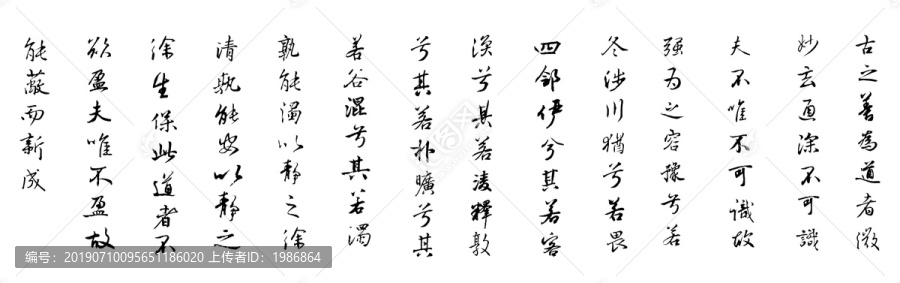 古之善為道者微
妙玄通深不可識
夫不唯不可識故
强为之容豫兮若
冬涉川猶兮若畏
四鄰伊兮其若客
涣兮其若凌釋敦
兮其若朴曠兮其
若谷混兮其若濁
孰能濁以靜之徐
清孰能安以靜之
徐生保此道者不
欲盈夫唯不盈故
能蔽而新成
编号：20190710095651186020 上传者ID：1986864